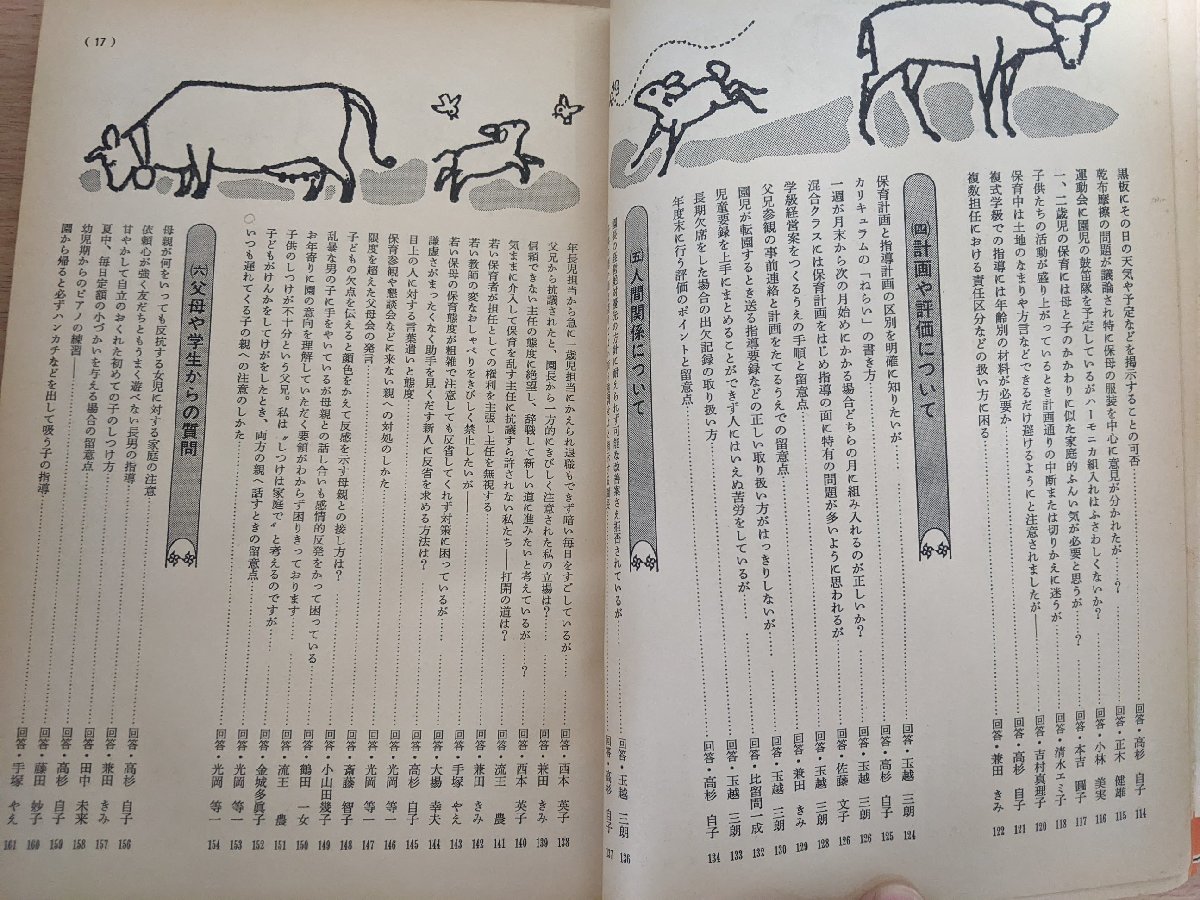 黒板にその日の天気や予定などを掲示することの可否……回答・高杉 自子 114
乾布摩擦の問題が議論され特に保母の服装を中心に意見が分かれたが……?……回答・正木 健雄 115
運動会に園児の鼓笛隊を予定しているがハーモニカ組入れはふさわしくないか?……回答・小林 美実 116
一、二歳児の保育には母と子のかかわりに似た家庭的ふんい気が必要と思うが……?……回答・本吉 圓子 117
子供たちの活動が盛り上がっているとき計画通りの中断または切りかえに迷うが……回答・清水エミ子 118
保育中は土地のなまりや方言などできるだけ避けるようにと注意されましたが――……回答・吉村真理子 120
複式学級での指導には年齢別の材料が必要か……回答・高杉 自子 121
複数担任における責任区分などの扱い方に困る……回答・兼田 きみ 122
㈣計画や評価について
保育計画と指導計画の区別を明確に知りたいが……回答・玉越 三朗 124
カリキュラムの「ねらい」の書き方……回答・高杉 自子 125
一週が月末から次の月始めにかかる場合どちらの月に組み入れるのが正しいか?……回答・玉越 三朗 126
混合クラスには保育計画をはじめ指導の面に特有の問題が多いように思われるが……回答・佐藤 文子 126
学級経営案をつくるうえの手順と留意点……回答・玉越 三朗 128
父兄参観の事前連絡と計画をたてるうえでの留意点……回答・兼田 きみ 129
園児が転園するとき送る指導要録などの正しい取り扱い方がはっきりしないが……回答・玉越 三朗 130
児童要録を上手にまとめることができず人にはいえぬ苦労をしているが……回答・比留間一成 132
長期欠席をした場合の出欠記録の取り扱い方……回答・玉越 三朗 133
年度末に行う評価のポイントと留意点……回答・高杉 自子 134
㈤人間関係について
されているが……回答・玉越 三朗 136
回答・高杉 自子 137
(17)
年長児担当から急に一歳児担当にかえられ退職もできず暗い毎日をすごしているが……回答・西本 英子 138
父兄から抗議されたと、園長から一方的にきびしく注意された私の立場は?……回答・兼田 きみ 139
信頼できない主任の態度に絶望し、辞職して新しい道に進みたいと考えているが……?……回答・西本 英子 140
気ままに介入して保育を乱す主任に抗議すら許されない私たち――打開の道は?……回答・流王 農 141
若い保育者が担任としての権利を主張し主任を無視する……回答・兼田 きみ 142
若い教師の変なおしゃべりをきびしく禁止したいが――……回答・手塚 やえ 143
若い保母の保育態度が粗雑で注意しても反省してくれず対策に困っているが……回答・大場 幸夫 144
謙虚さがまったくなく助手を見くだす新人に反省を求める方法は?……回答・高杉 自子 145
目上の人に対する言葉遣いと態度……回答・光岡 等一 146
保育参観や懇談会などに来ない親への対処のしかた……回答・光岡 等一 147
限度を超えた父母会の発言……回答・斎藤 智子 148
子どもの欠点を伝えると顔色をかえて反感を示す母親との接し方は?……回答・小山田幾子 149
乱暴な男の子に手をやいているが母親との話し合いも感情的反発をかって困っている……回答・鶴田 一女 150
お年寄りに園の意向を理解していただく要領がわからず困りきっております……回答・流王 農 151
子供のしつけが不十分という父兄。私は〝しつけは家庭で〟と考えるのですが……回答・金城多眞子 152
子どもがけんかをしてけがをしたとき、両方の親へ話すときの留意点……回答・光岡 等一 153
いつも遅れてくる子の親への注意のしかた……回答・光岡 等一 154
㈥父母や学生からの質問
母親が何をいっても反抗する女児に対する家庭の注意……回答・高杉 自子 156
依頼心が強く友だちともうまく遊べない長男の指導……回答・兼田 きみ 157
甘やかして自立のおくれた初めての子のしつけ方……回答・田中 未来 158
夏中、毎日定額の小づかいを与える場合の留意点……回答・高杉 自子 159
幼児期からのピアノの練習――……回答・藤田 妙子 160
園から帰ると必ずハンカチなどを出して吸う子の指導……回答・手塚 やえ 161